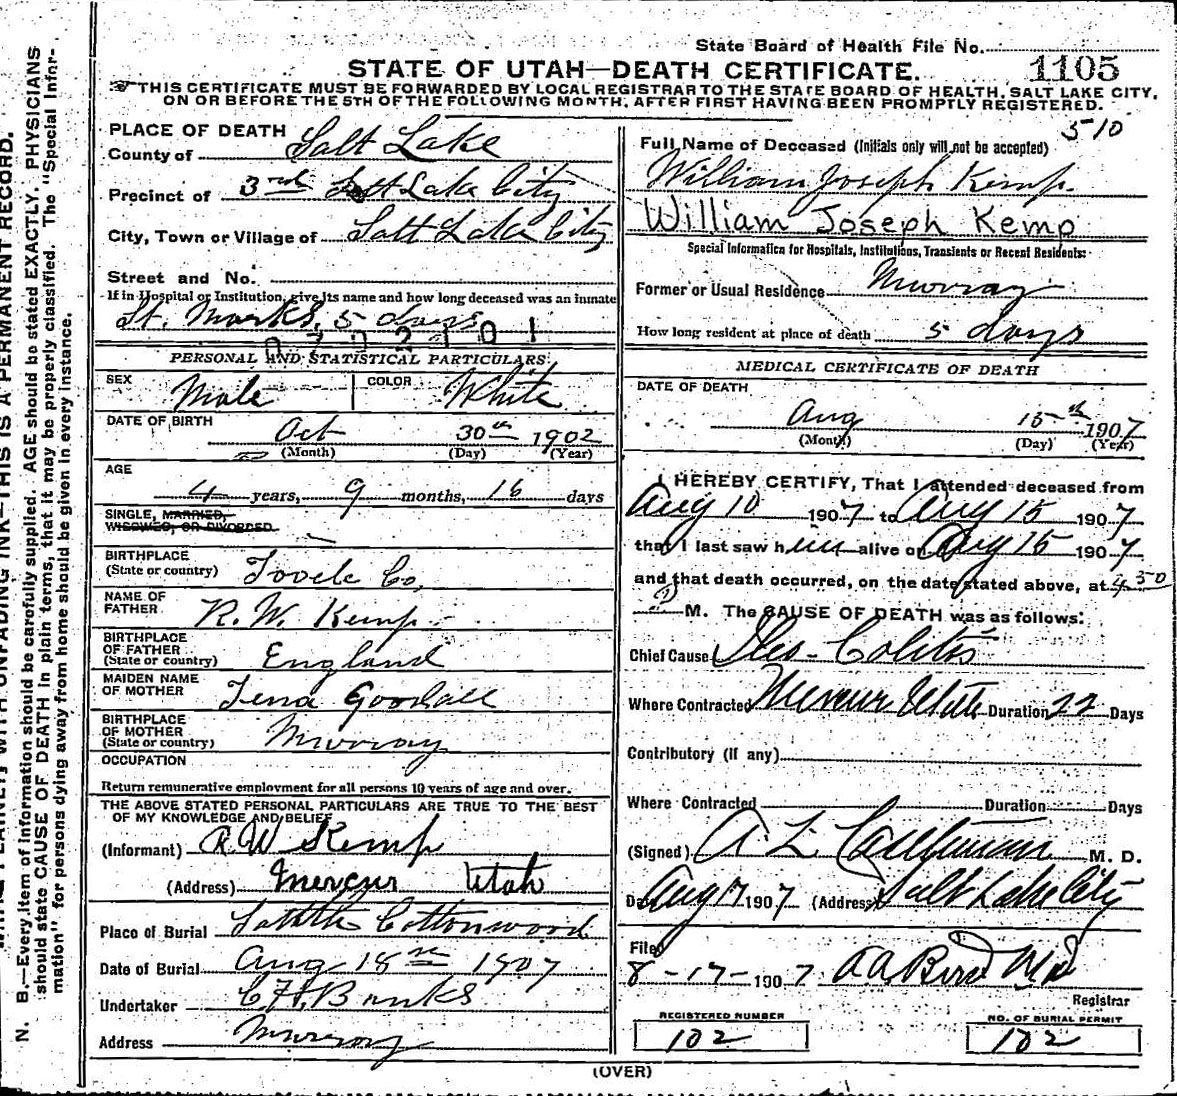 State Board of Health File No. 1105
STATE OF UTAH—DEATH CERTIFICATE.
THIS CERTIFICATE MUST BE FORWARDED BY LOCAL REGISTRAR TO THE STATE BOARD OF HEALTH, SALT LAKE CITY,
ON OR BEFORE THE 5TH OF THE FOLLOWING MONTH, AFTER FIRST HAVING BEEN PROMPTLY REGISTERED.
510
PLACE OF DEATH
County of Salt Lake
Precinct of 3rd Salt Lake City
City, Town or Village of Salt Lake City
Street and No.
If in Hospital or Institution, give its name and how long deceased was an inmate
St. Marks, 5 days
PERSONAL AND STATISTICAL PARTICULARS.
SEX Male COLOR White
DATE OF BIRTH Oct 30th 1902
(Month) (Day) (Year)
AGE
4 years, 9 months, 16 days
SINGLE, MARRIED,
WIDOWED, OR DIVORCED
BIRTHPLACE
(State or country) Tooele Co.
NAME OF
FATHER R. W. Kemp
BIRTHPLACE
OF FATHER
(State or country) England
MAIDEN NAME
OF MOTHER Tena Goodall
BIRTHPLACE
OF MOTHER
(State or country) Murray
OCCUPATION
Return remunerative employment for all persons 10 years of age and over.
THE ABOVE STATED PERSONAL PARTICULARS ARE TRUE TO THE BEST
OF MY KNOWLEDGE AND BELIEF
(Informant) R W Kemp
(Address) Mercur Utah
Place of Burial Cottonwood
Date of Burial Aug 18th 1907
Undertaker Banks
Address Murray
Full Name of Deceased (Initials only will not be accepted)
William Joseph Kemp.
William Joseph Kemp
Special Information for Hospitals, Institutions, Transients or Recent Residents:
Former or Usual Residence Murray
How long resident at place of death 5 days
MEDICAL CERTIFICATE OF DEATH
DATE OF DEATH
Aug 15th 1907
(Month) (Day) (Year)
I HEREBY CERTIFY, That I attended deceased from
Aug 10 1907 to Aug 15 1907
that I last saw him alive on Aug 15 1907
and that death occurred, on the date stated above, at 4 30
P M. The CAUSE OF DEATH was as follows:
Chief Cause Ileo-Colitis
Where Contracted Mercur Utah Duration 22 Days
Contributory (if any)
Where Contracted Duration Days
(Signed) A L M. D.
Aug 17 1907 (Address) Salt Lake City
Filed
8-17-1907 MD
Registrar
REGISTERED NUMBER
102
NO. OF BURIAL PERMIT
102
(OVER)
N. B.—Every item of information should be carefully supplied. AGE should be stated EXACTLY. PHYSICIANS
should state CAUSE OF DEATH in plain terms, that it may be properly classified. The "Special Infor-
mation" for persons dying away from home should be given in every instance.